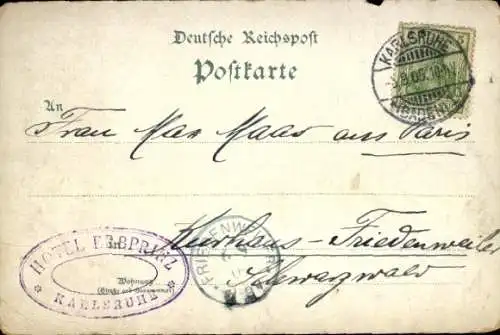 Deutsche Reichspost
Postkarte
KARLSRUHE
An
Frau Max Maas aus Paris
in
Kurhaus-Friedenweiler
Schwarzwald
HOTEL ERBPRINZ
KARLSRUHE
Wohnung
(Straße und Hausnummer)
FRIEDENW